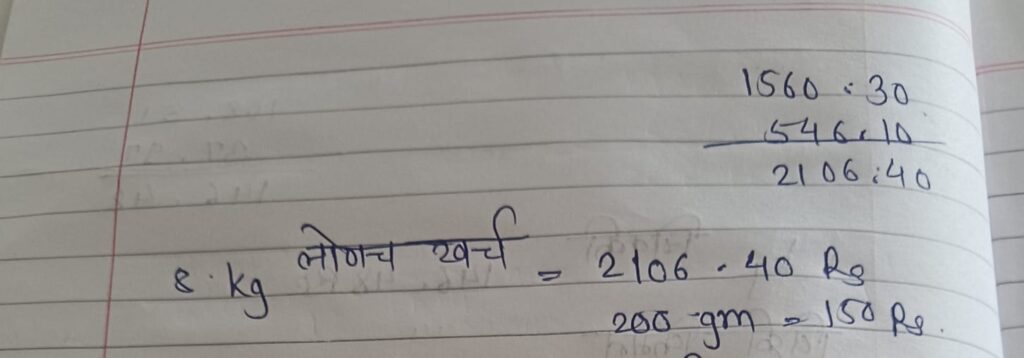 1560.30
546.10
2106.40
8. kg लोणच खर्च = 2106.40 Rs
200 gm = 150 Rs.